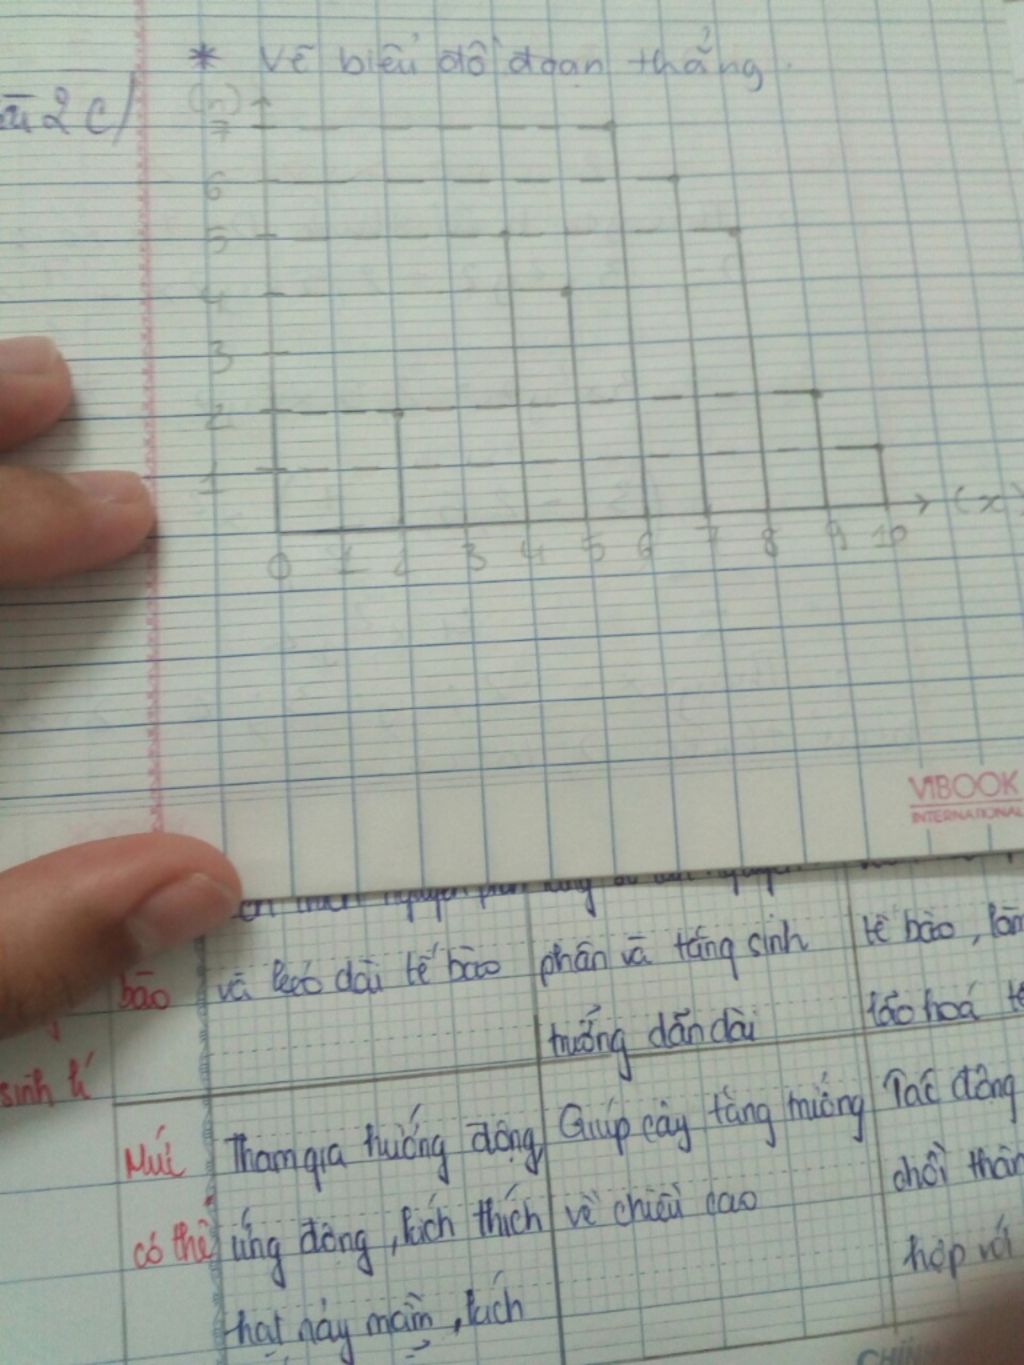 * Vẽ biểu đồ đoạn thẳng.
2 c/
(n)
7
6
5
4
3
2
1
0 1 2 3 4 5 6 7 8 9 10 (x)
VIBOOK
INTERNATIONAL
bão và kéo dài tế bào phân và tăng sinh tế bào,
trưởng dãn dài lão hoá
sinh lí
Mức Tham gia hướng động Giúp cây tăng trưởng Tác động
có thể ứng động, kích thích về chiều cao chồi thân
hạt nảy mầm, kích hợp với